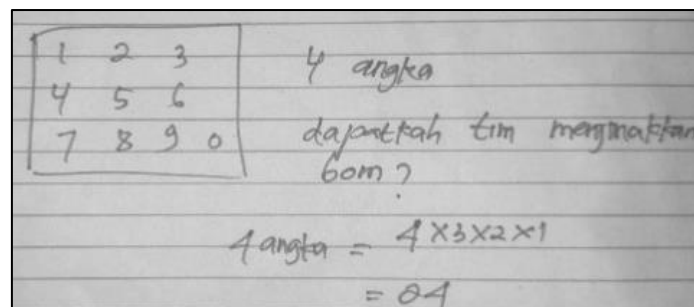 1 2 3
4 5 6
7 8 9 0
4 angka
dapatkah tim menjinakkan
bom?
4 angka = 4 × 3 × 2 × 1
= 24